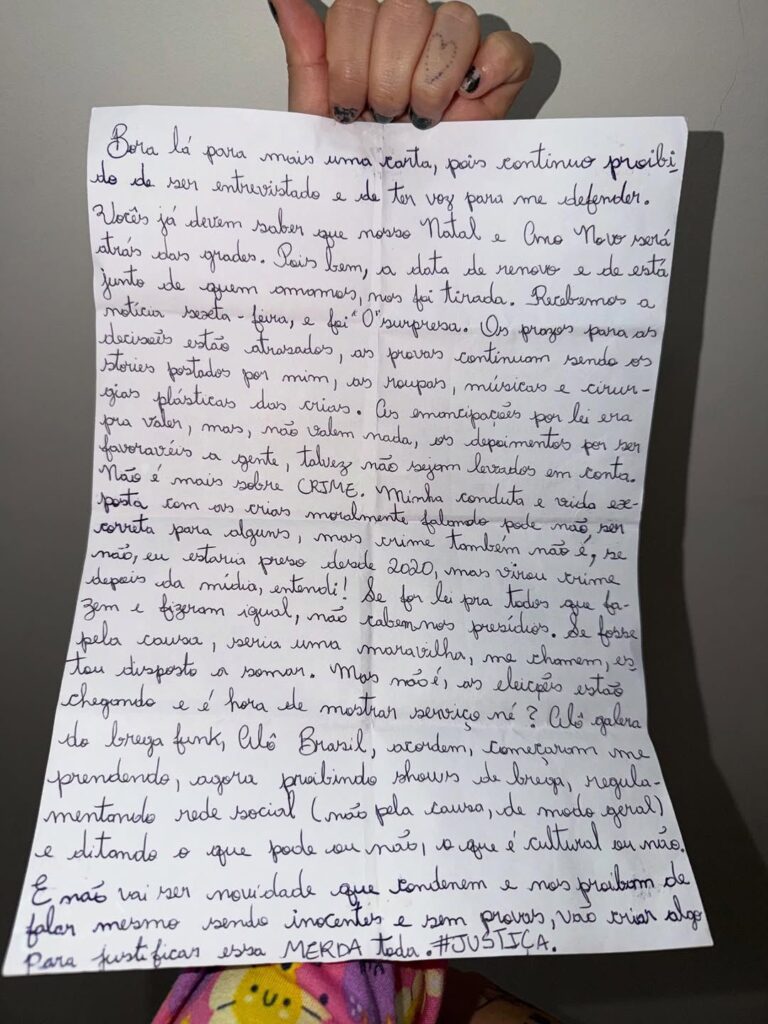 Bora lá para mais uma carta, pois continuo proibi-
do de ser entrevistado e de ter voz para me defender.
Vocês já devem saber que nosso Natal e Ano Novo será
atrás das grades. Pois bem, a data de renovo e de está
junto de quem amamos, nos foi tirada. Recebemos a
notícia sexta-feira, e foi "0" surpresa. Os prazos para as
deciseis estão atrasados, as provas continuam sendo os
stories postados por mim, as roupas, músicas e cirur-
gias plásticas das crias. As emancipações por lei era
pra valer, mas, não valem nada, os depoimentos por ser
favoravéis a gente, talvez não sejam levados em conta.
Não é mais sobre CRIME. Minha conduta e vida ex-
posta com as crias moralmente falando pode não ser
correta para alguns, mas crime também não é, se
não, eu estaria preso desde 2020, mas virou crime
depois da mídia, entendi! Se for lei pra todos que fa-
zem e fizeram igual, não cabem nos presídios. Se fosse
pela causa, seria uma maravilha, me chamem, es-
tou disposto a somar. Mas não é, as eleições estão
chegando e é hora de mostrar serviço né? Alô galera
do brega funk, Alô Brasil, acordem, começaram me
prendendo, agora proibindo shows de brega, regula-
mentando rede social (não pela causa, de modo geral)
e ditando o que pode ou não, o que é cultural ou não.
E não vai ser novidade que condenem e nos proibam de
falar mesmo sendo inocentes e sem provas, vão criar algo
para justificar essa MERDA toda. #JUSTIÇA.